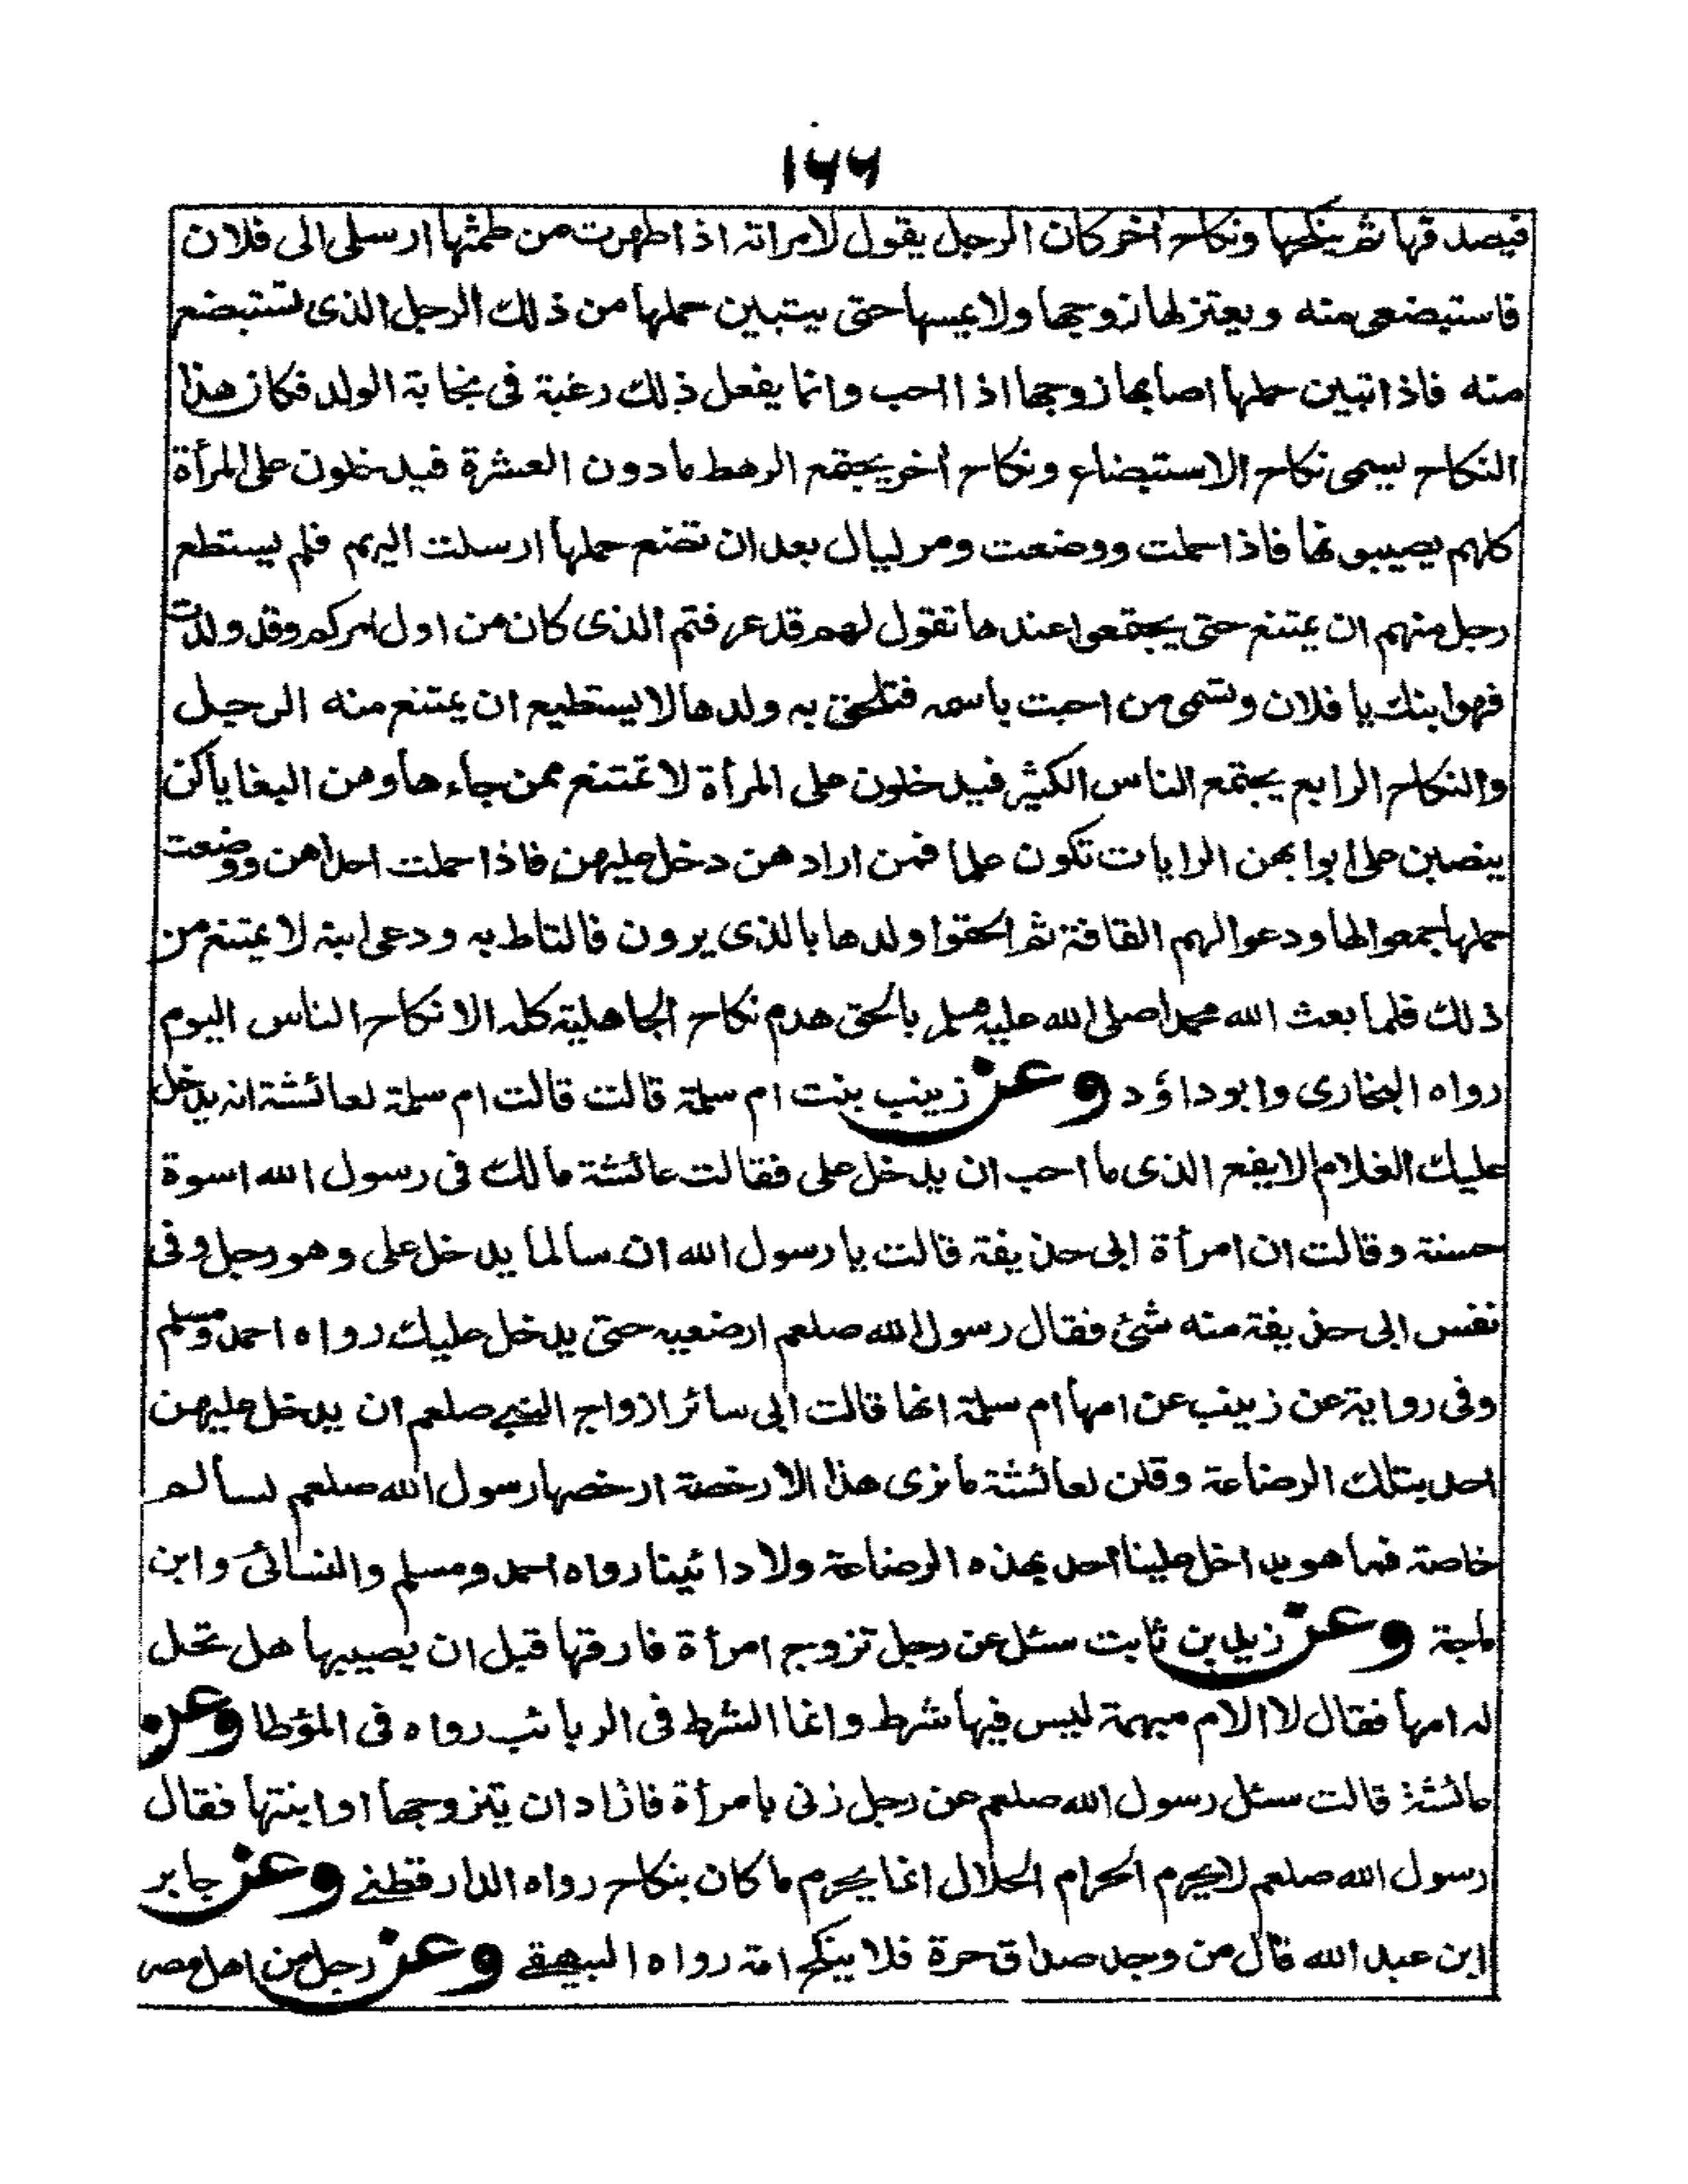 ١٦٦
فيصدقها ثم ينكحها ونكاح اخر كان الرجل يقول لامراته اذا طهرت من طمثها ارسلى الى فلان
فاستبضعى منه ويعتزلها زوجها ولا يمسها حتى يتبين حملها من ذلك الرجل الذى تستبضع
منه فاذا تبين حملها اصابها زوجها اذا احب وانما يفعل ذلك رغبة فى نجابة الولد فكان هذا
النكاح ليسمى نكاح الاستبضاع ونكاح اخر يجتمع الرهط مادون العشرة فيدخلون على المرأة
كلهم يصيبونها فاذا حملت ووضعت ومر ليال بعد ان تضع حملها ارسلت اليهم فلم يستطع
رجل منهم ان يمتنع حتى يجتمعوا عندها تقول لهم قد عرفتم الذى كان من اول امركم وقد ولدت
فهو ابنك يا فلان وتسمى من احبت باسمه فتلحق به ولدها لا يستطيع ان يمتنع منه الرجل
والنكاح الرابع يجتمع الناس الكثير فيدخلون على المرأة لا تمتنع ممن جاءها وهن البغايا كن
ينصبن على ابوابهن الرايات تكون علما فمن ارادهن دخل عليهن فاذا حملت احداهن ووضعت
حملها جمعوا لها ودعوا لهم القافة ثم الحقوا ولدها بالذى يرون فالتاط به ودعى ابنه لا يمتنع من
ذلك فلما بعث الله محمدا صلى الله عليه وسلم بالحق هدم نكاح الجاهلية كله الا نكاح الناس اليوم
رواه البخارى وابوداؤد وعن زينب بنت ام سلمة قالت قالت ام سلمة لعائشة انه يدخل
عليك الغلام الايفع الذى ما احب ان يدخل على فقالت عائشة مالك فى رسول الله اسوة
حسنة وقالت ان امرأة ابى حذيفة قالت يا رسول الله ان سالما يدخل على وهو رجل وفى
نفس ابى حذيفة منه شئ فقال رسول الله صلعم ارضعيه حتى يدخل عليك رواه احمد ومسلم
وفى رواية عن زينب عن امها ام سلمة انها قالت ابى سائر ازواج النبى صلعم ان يدخل عليهن
احد بتلك الرضاعة وقلن لعائشة ما نرى هذا الا رخصة ارخصها رسول الله صلعم لسالم
خاصة فما هو بداخل علينا احد بهذه الرضاعة ولا رائينا رواه احمد ومسلم والنسائى وابن
ماجة وعن زيد بن ثابت سئل عن رجل تزوج امرأة فارقها قبل ان يصيبها هل تحل
له امها فقال لا الام مبهمة ليس فيها شرط وانما الشرط فى الربائب رواه فى المؤطا وعن
عائشة قالت سئل رسول الله صلعم عن رجل زنى بامرأة فاراد ان يتزوجها او ابنتها فقال
رسول الله صلعم لا يحرم الحرام الحلال انما يحرم ما كان بنكاح رواه الدارقطنى وعن جابر
ابن عبد الله قال من وجد صداق حرة فلا ينكح امة رواه البيهقى وعن رجل من اهل مصر